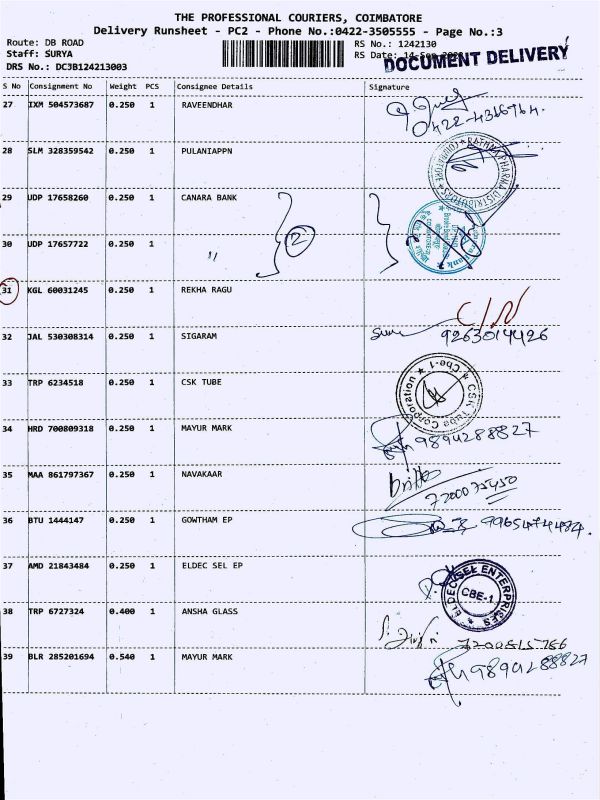 THE PROFESSIONAL COURIERS, COIMBATORE
Delivery Runsheet - PC2 - Phone No.:0422-3505555 - Page No.:3
Route: DB ROAD
Staff: SURYA
DRS No.: DC3B124213003
RS No.: 1242130
RS Date: 14-Sep
DOCUMENT DELIVERY
S No Consignment No Weight PCS Consignee Details Signature
27 IXM 504573687 0.250 1 RAVEENDHAR
0422-4366964.
28 SLM 328359542 0.250 1 PULANIAPPN
RATHNA PHARMA DISTRIBUTORS * COIMBATORE *
29 UDP 17658260 0.250 1 CANARA BANK
2
30 UDP 17657722 0.250 1 "
31 KGL 60031245 0.250 1 REKHA RAGU
C/N
32 JAL 530308314 0.250 1 SIGARAM
9263014426
33 TRP 6234518 0.250 1 CSK TUBE
* CSK Tube Corporation * Cbe-1
34 HRD 700809318 0.250 1 MAYUR MARK
9894288827
35 MAA 861797367 0.250 1 NAVAKAAR
Britto
7200075450
36 BTU 1444147 0.250 1 GOWTHAM EP
9965474484.
37 AMD 21843484 0.250 1 ELDEC SEL EP
ELDECSEL ENTERPRISES * CBE-1
38 TRP 6727324 0.400 1 ANSHA GLASS
7200515756
39 BLR 285201694 0.540 1 MAYUR MARK
9894288827